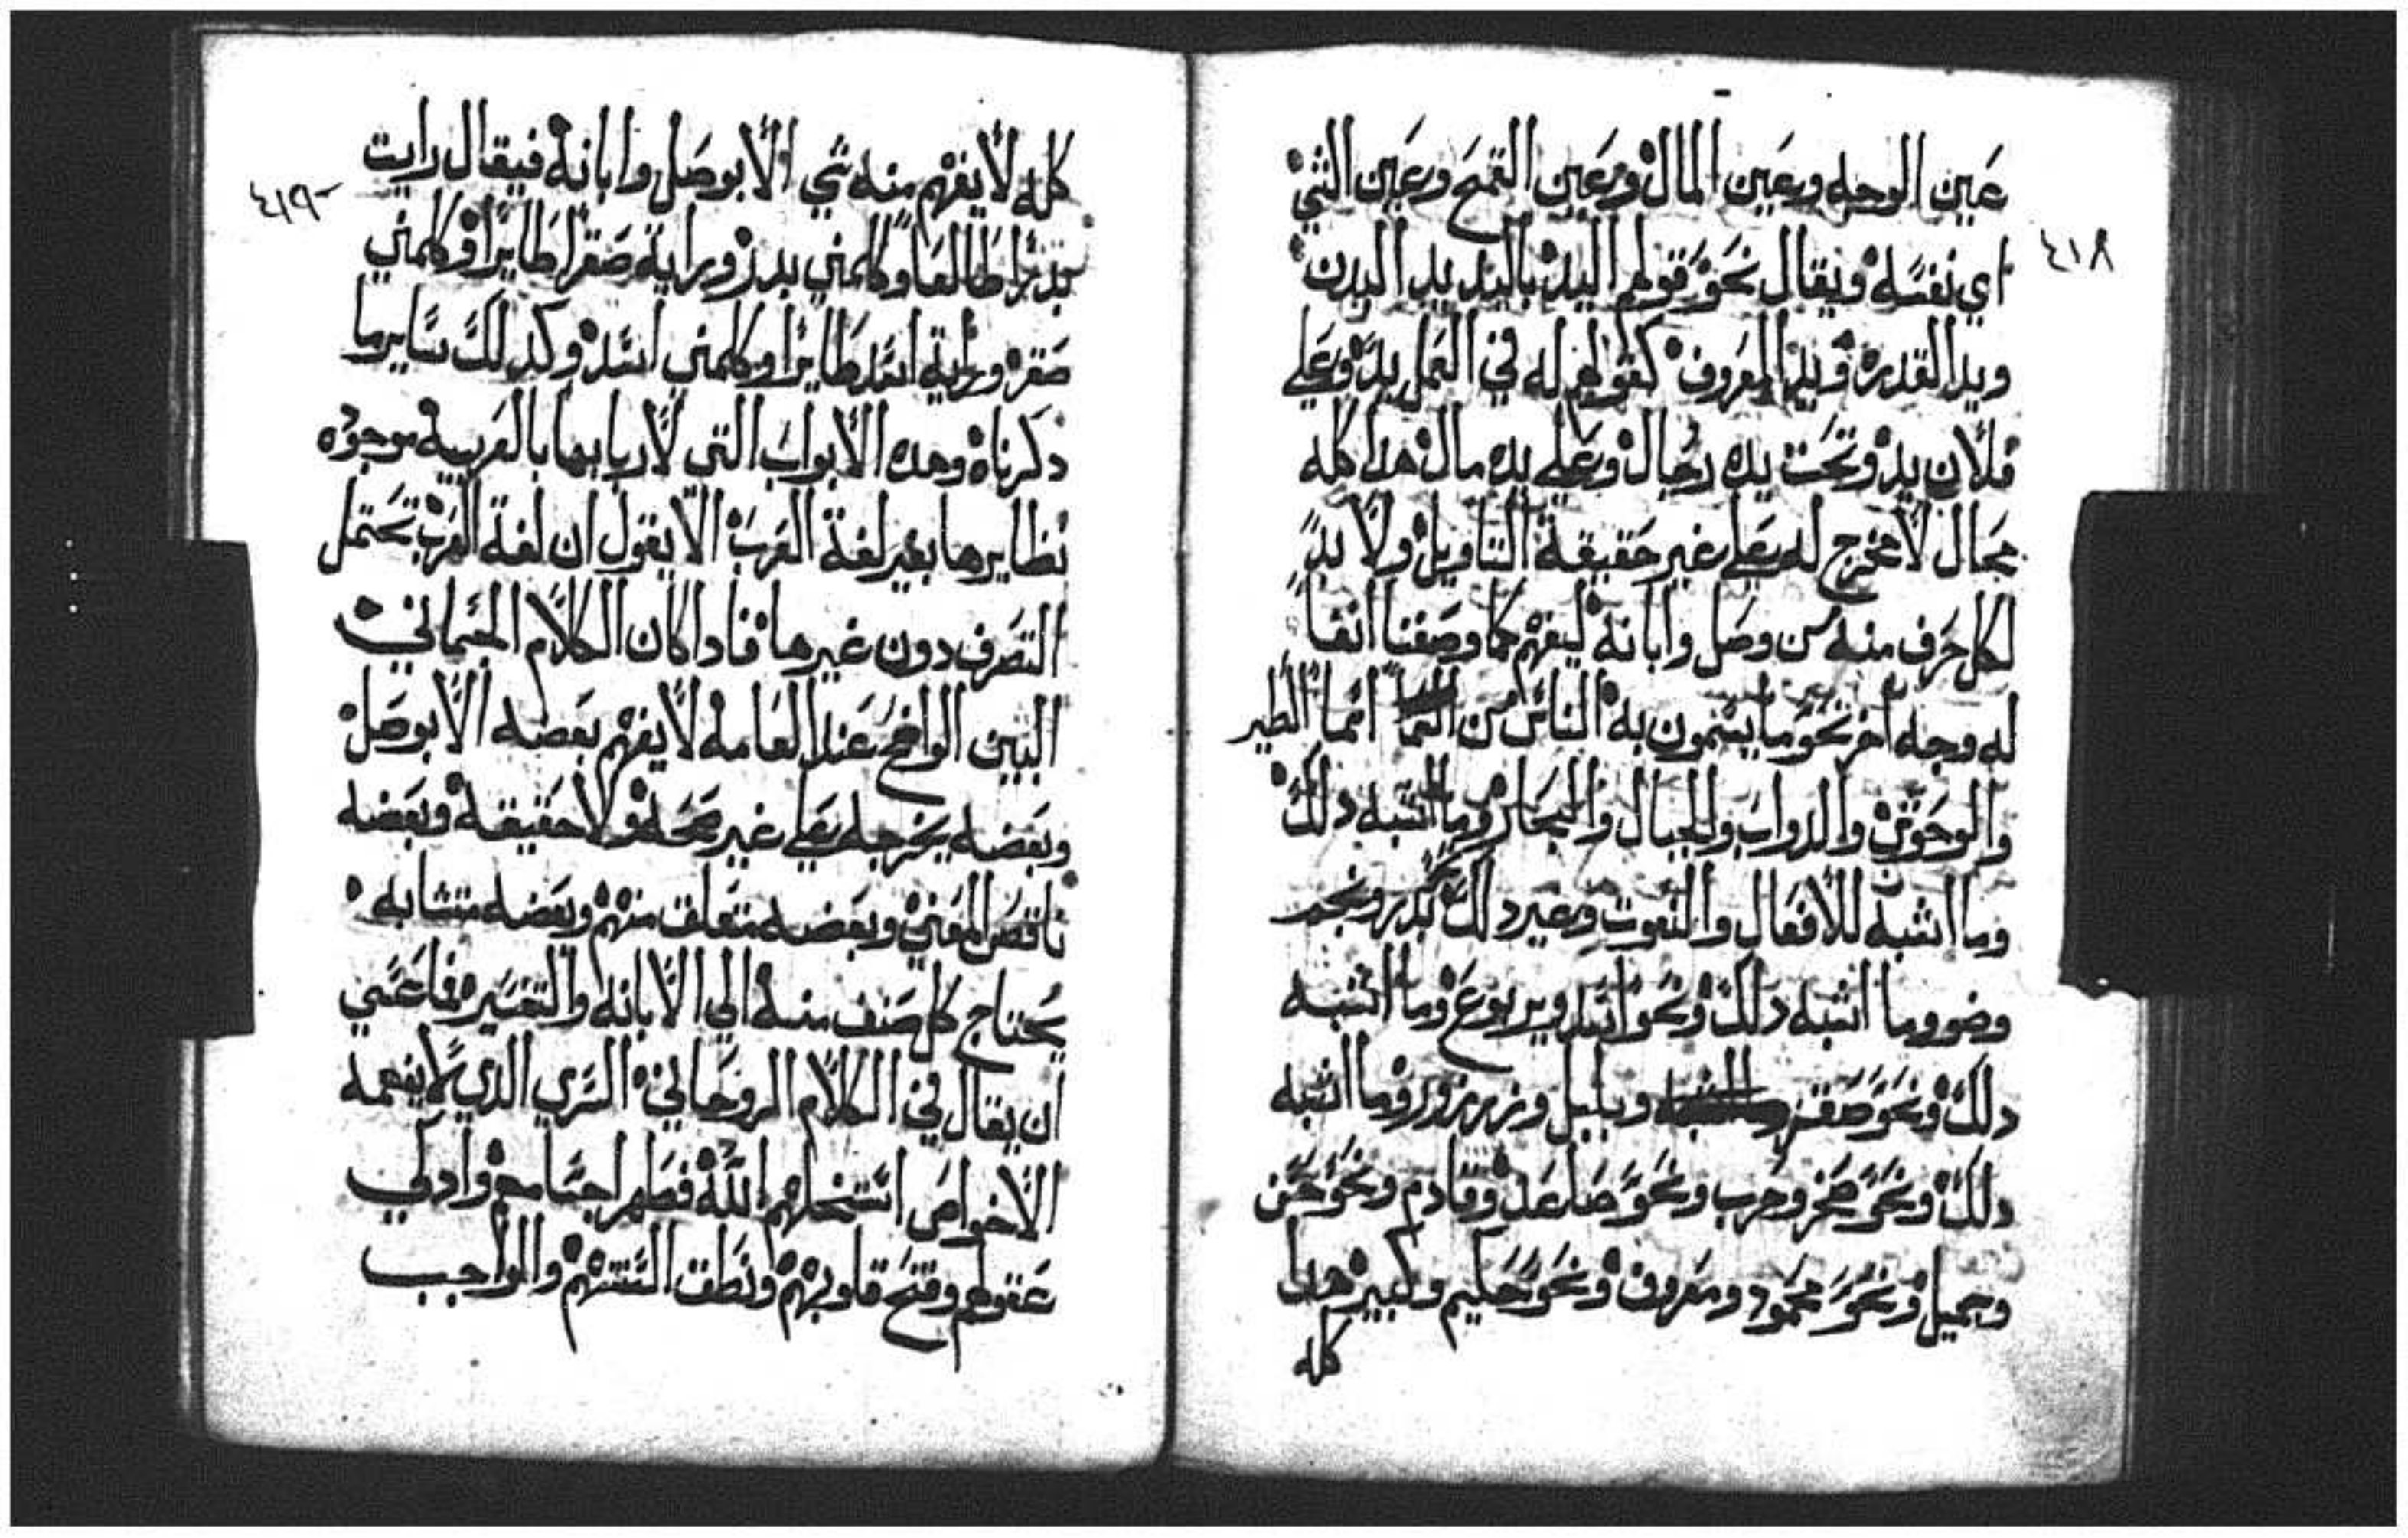 ٤١٨
عين الوجه وعين المال وعين القمح وعين الشي
اي نفسه ويقال نحو قولهم اليد باليد يد البدن
ويد القدره ويد المعروف كقولهم له في العمل يد وعلي
فلان يد وتحت يده رجال وعلي يده مال هدا كله
مجال لا مخرج له علي غير حقيقة التاويل ولا بد
لكل حرف منه من وصل وابانه ليفهم كما وصفنا انفا
له وجه اخر نحو ما يسمون به الناس من اسما الطير
والوحوش والدواب والجبال والبحار وما اشبه دلك
وما اشبه للافعال والنعوت وغير دلك كبدر ونجم
وضو وما اشبه دلك ونحو اسد ويربوع وما اشبه
دلك ونحو صقر وبلبل وزرزور وما اشبه
دلك ونحو صخر وحرب ونحو صاعد وقادم ونحو حسن
وجميل ونحو محمود ومعروف ونحو حكيم وكبير هدا
كله
٤١٩
كله لا يفهم منه شي الا بوصل وابانه فيقال رايت
بدرا طالعا وكلمني بدر ورايت صقرا طايرا وكلمني
صقر ورايت اسد طايرا وكلمني اسد وكدلك ساير ما
دكرناه وهده الابواب التي لاربابها بالعربيه موجوده
نظايرها بغير لغة العرب الا يقول ان لغة العرب تحتمل
التصرف دون غيرها فادا كان الكلام الجسماني
البين الواضح عند العامه لا يفهم بعضه الا بوصل
وبعضه يخرجه علي غير صحه ولا حقيقه وبعضه
ناقص المعني وبعضه متعلق منهم وبعضه متشابه
يحتاج كل صنف منه الي الابانه والتفسير فما عسي
ان يقال في الكلام الروحاني السري الدي لا يفهمه
الا خواص استخلهم الله فطهر اجسامهم وادكي
عقولهم وفتح قلوبهم ونطق السنتهم والواجب